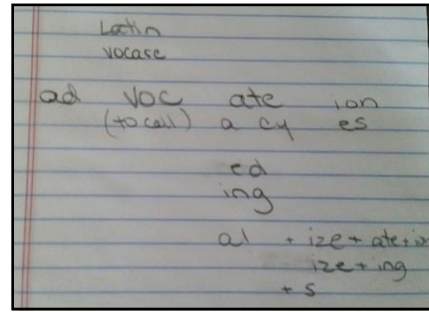 Latin
vocare
ad voc ate ion
(to call) a cy es
ed
ing
al + ize + ate + i
ize + ing
+ s